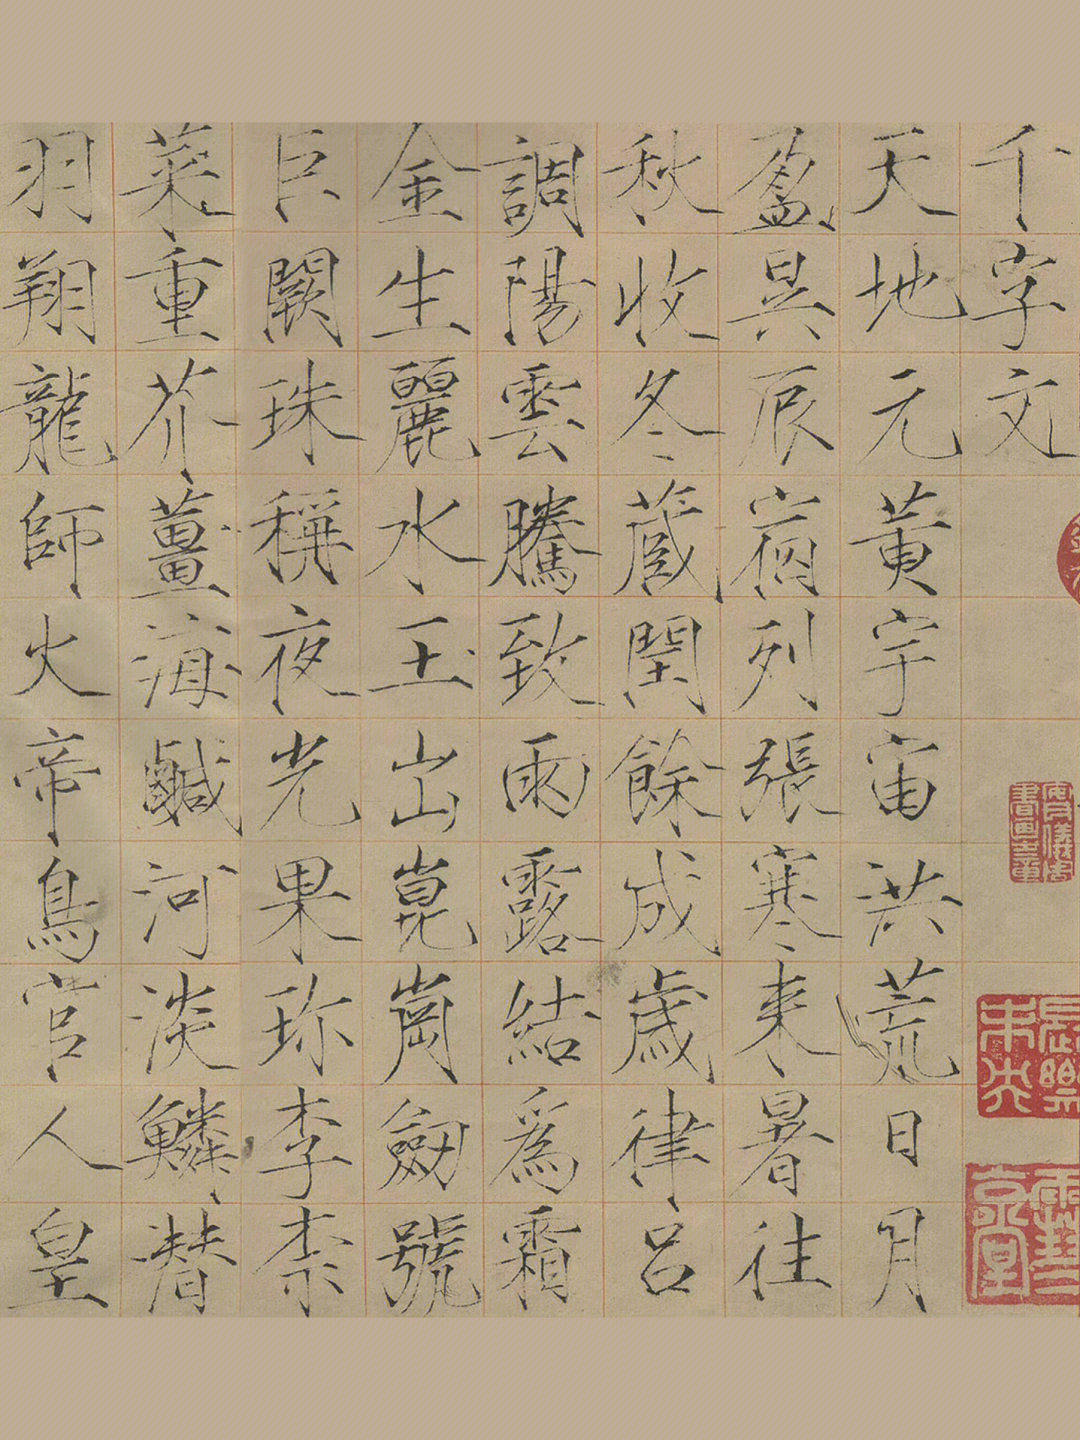 千字文
天地元黄宇宙洪荒日月
盈昃辰宿列張寒来暑往
秋收冬蔵閏餘成歲律呂
調陽雲騰致雨露結爲霜
金生麗水玉出崑崗劒號
巨闕珠稱夜光果珎李柰
菜重芥薑海鹹河淡鱗潜
羽翔龍師火帝鳥官人皇
長樂未央